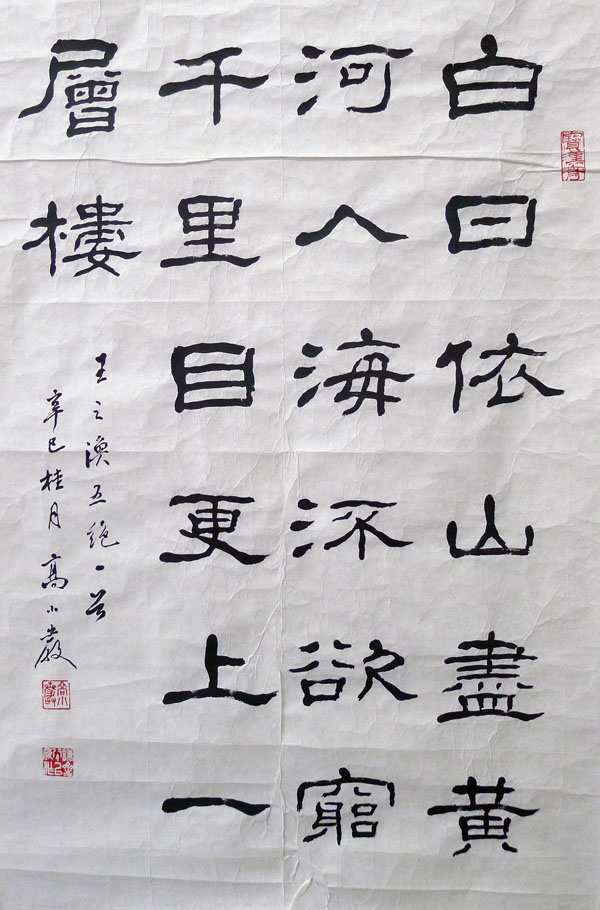 白日依山盡黃
河入海流欲窮
千里目更上一
層樓
王之渙五絕一首
辛巳桂月 高小巖